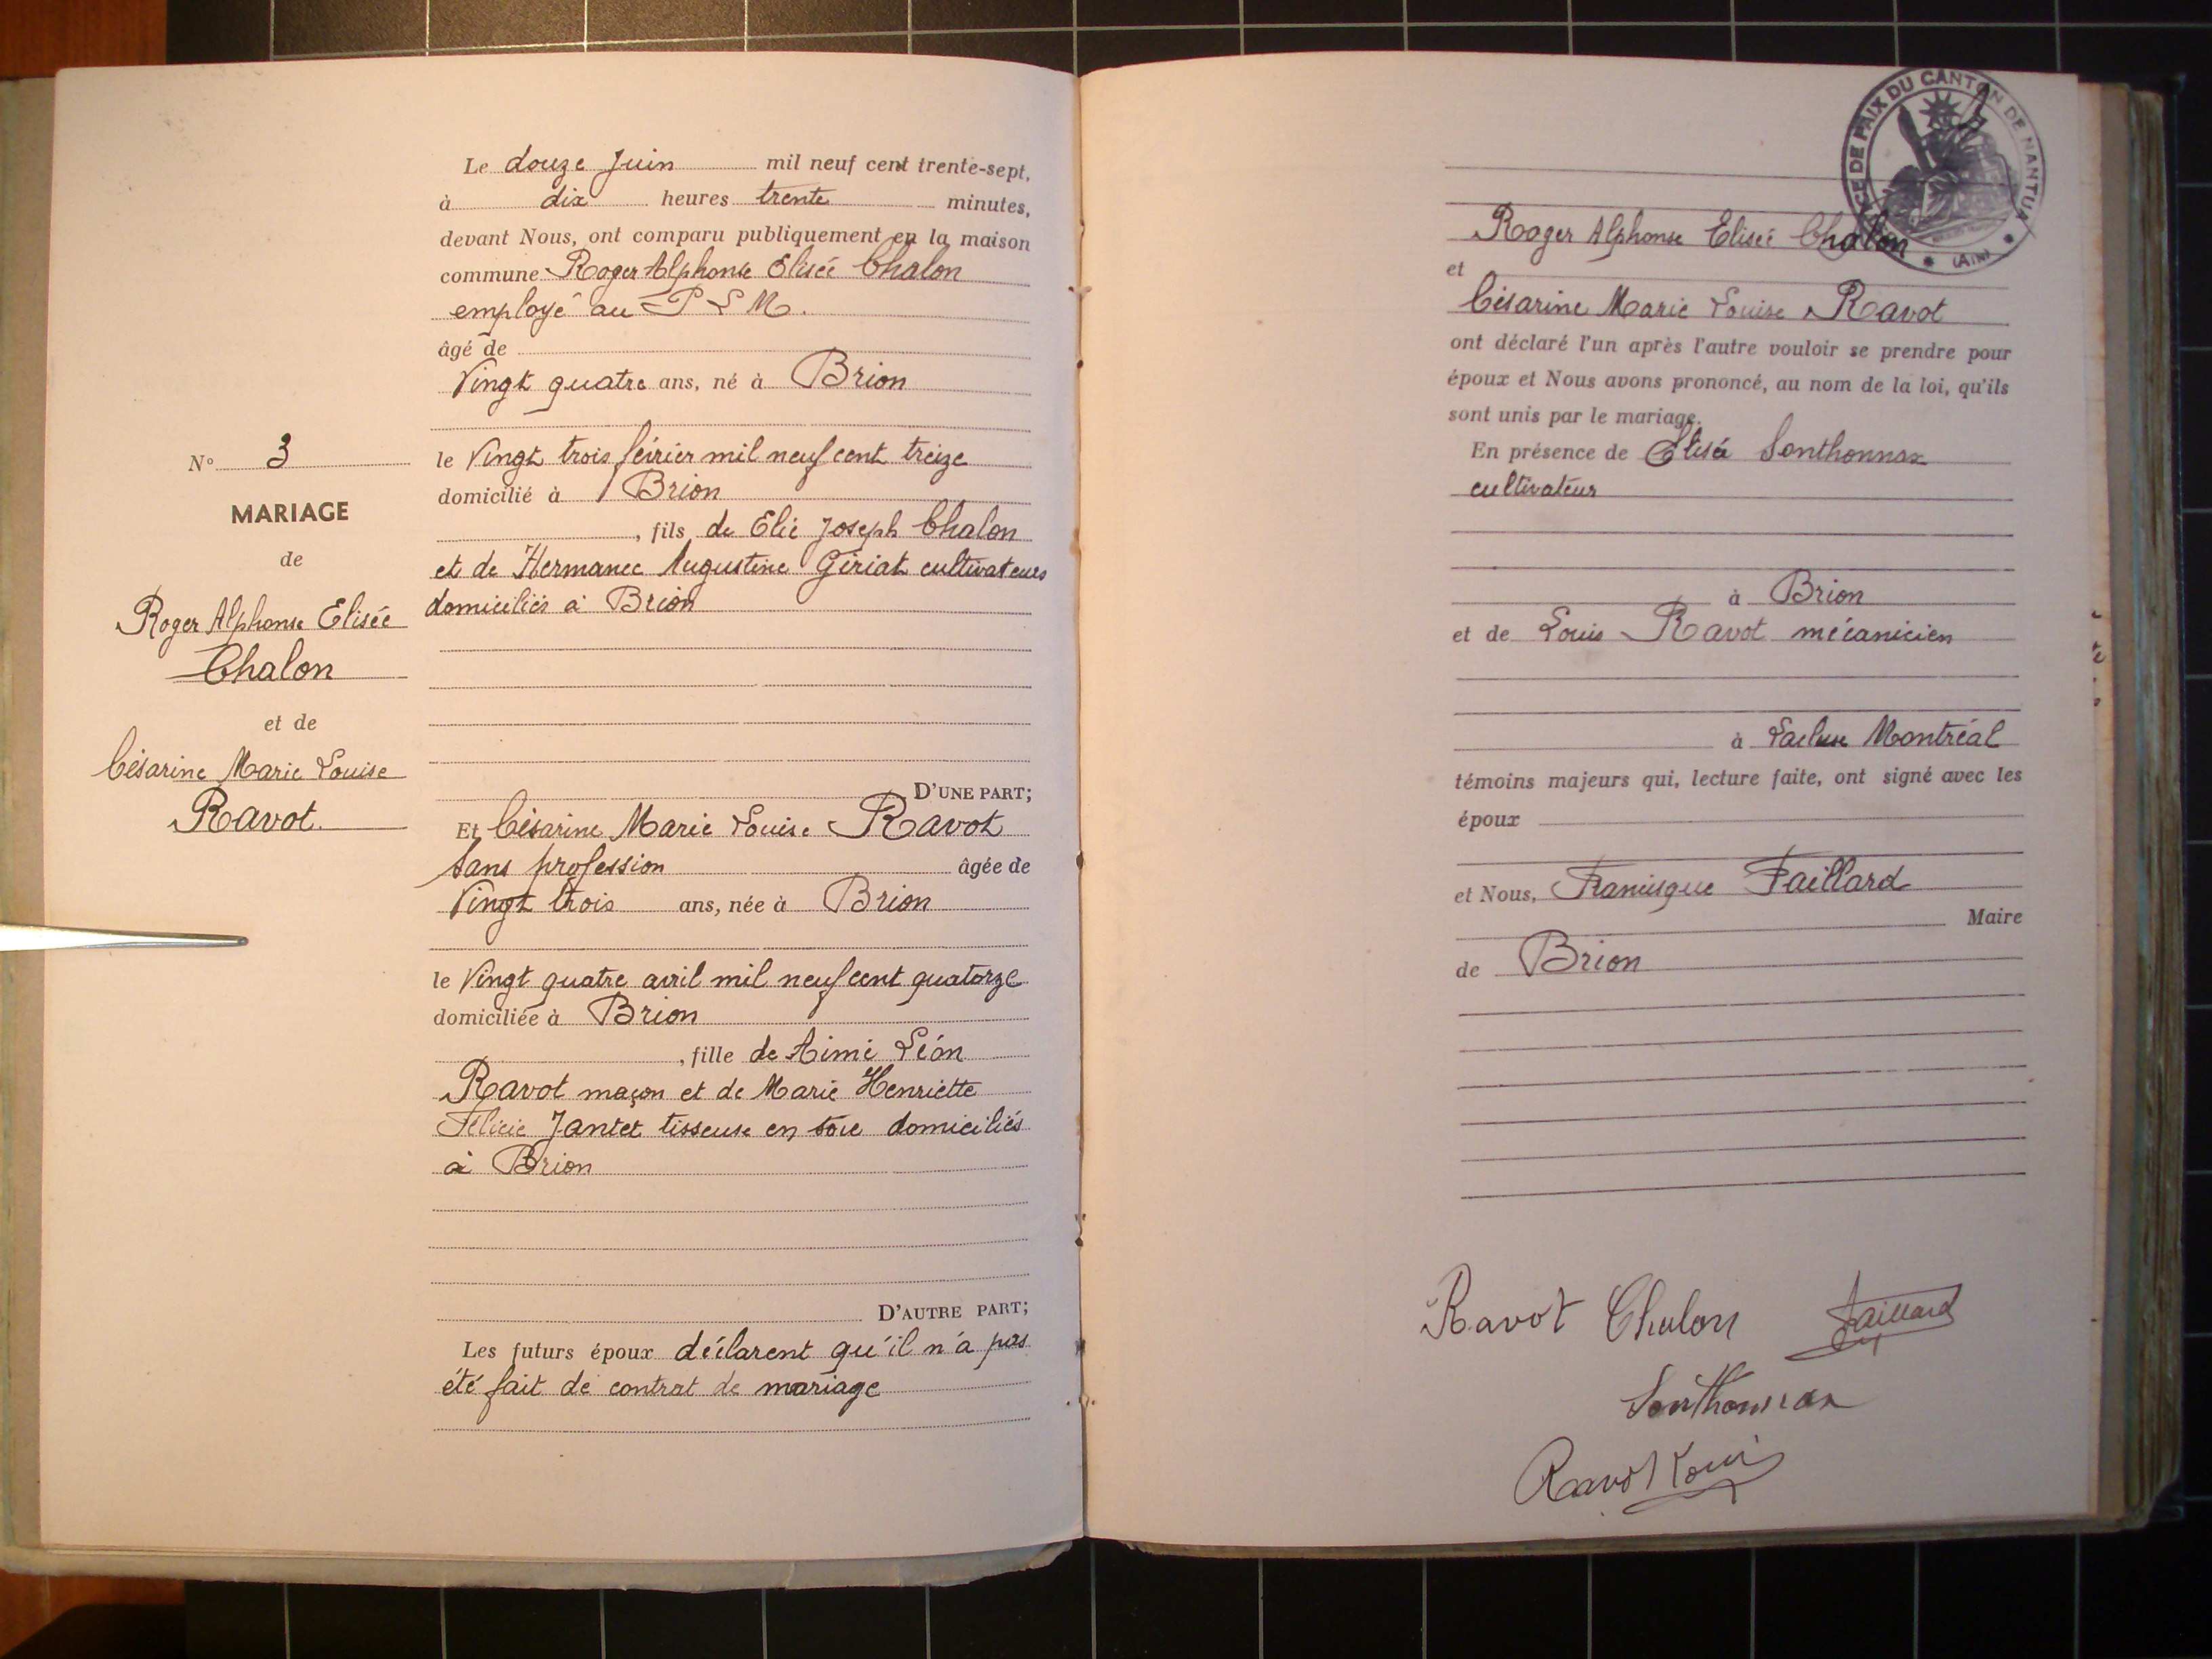 N° 3
MARIAGE
de
Roger Alphonse Elisée
Chalon
et de
Césarine Marie Louise
Ravot.
Le douze Juin mil neuf cent trente-sept,
à dix heures trente minutes,
devant Nous, ont comparu publiquement en la maison
commune Roger Alphonse Elisée Chalon
employé au P L M.
âgé de
Vingt quatre ans, né à Brion
le Vingt trois février mil neuf cent treize
domicilié à Brion
, fils de Elie Joseph Chalon
et de Hermance Augustine Gériat cultivateurs
domiciliés à Brion
D'UNE PART;
Et Césarine Marie Louise Ravot
sans profession âgée de
Vingt trois ans, née à Brion
le Vingt quatre avril mil neuf cent quatorze
domiciliée à Brion
, fille de Aimé Léon
Ravot maçon et de Marie Henriette
Félicie Jantet tisseuse en soie domiciliés
à Brion
D'AUTRE PART;
Les futurs époux déclarent qu'il n'a pas
été fait de contrat de mariage
CE DE PAIX DU CANTON DE NANTUA * (AIN) *
Roger Alphonse Elisée Chalon
et
Césarine Marie Louise Ravot
ont déclaré l'un après l'autre vouloir se prendre pour
époux et Nous avons prononcé, au nom de la loi, qu'ils
sont unis par le mariage.
En présence de Elisée Sonthonnax
cultivateur
à Brion
et de Louis Ravot mécanicien
à Montréal
témoins majeurs qui, lecture faite, ont signé avec les
époux
et Nous, Francisque Faillard
Maire
de Brion
Ravot Chalon Faillard
Sonthonnax
Ravot Louis